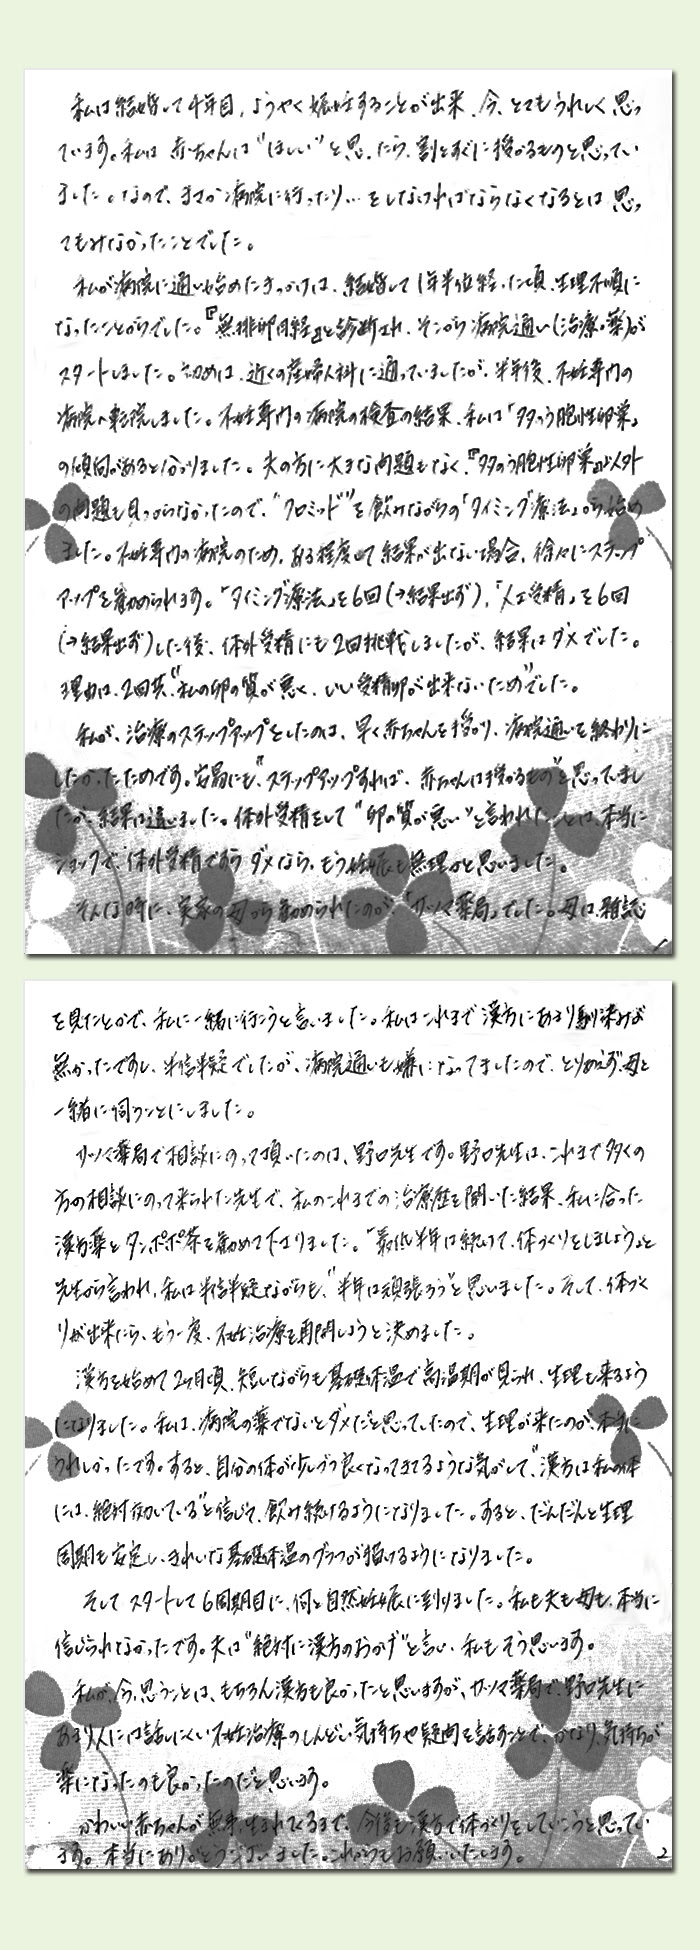 私は結婚して4年目、ようやく妊娠することが出来、今、とてもうれしく思っ
ています。私は 赤ちゃんは"ほしい"と思ったら、割とすぐに授かるものと思ってい
ました。なので、まさか病院に行ったり…をしなければならなくなるとは 思っ
てもみなかったことでした。
私が病院に通い始めたきっかけは、結婚して1年半位経った頃、生理不順に
なったことからでした。『無排卵月経』と診断され、そこから病院通い(治療・薬)が
スタートしました。初めは、近くの産婦人科に通っていましたが、半年後、不妊専門の
病院へ転院しました。不妊専門の病院の検査の結果、私は「多のう胞性卵巣」
の傾向があると分かりました。夫の方に大きな問題もなく、『多のう胞性卵巣』以外
の問題も見つからなかったので、"クロミッド"を飲みながらの「タイミング療法」から始め
ました。不妊専門の病院のため、ある程度して結果が出ない場合、徐々にステップ
アップを勧められます。「タイミング療法」を6回(→結果出ず)、「人工受精」を6回
(→結果出ず)した後、体外受精にも2回挑戦しましたが、結果はダメでした。
理由は、2回共、"私の卵の質が悪く、いい受精卵が出来ないため"でした。
私が、治療のステップアップをしたのは、早く赤ちゃんを授かり、病院通いを終わりに
したかったためです。安易にも、"ステップアップすれば、赤ちゃんは授かるもの"と思っていまし
たが、結果は違いました。体外受精をして"卵の質が悪い"と言われたことは、本当に
ショックで、体外受精ですらダメなら、もう妊娠も無理かと思いました。
そんな時に、実家の母から勧められたのが、「サツマ薬局」でした。母は、雑誌
1
を見たとかで、私に一緒に行こうと言いました。私はこれまで漢方にあまり馴染みは
無かったですし、半信半疑でしたが、病院通いも嫌になってましたので、とりあえず、母と
一緒に伺うことにしました。
サツマ薬局で相談にのって頂いたのは、野口先生です。野口先生は、これまで多くの
方の相談にのって来られた先生で、私のこれまでの治療歴を聞いた結果、私に合った
漢方薬とタンポポ茶を勧めて下さりました。「最低半年は続けて、体づくりをしましょう」と
先生から言われ、私は半信半疑ながらも、"半年は頑張ろう"と思いました。そして、体づく
りが出来たら、もう一度、不妊治療を再開しようと決めました。
漢方を始めて2ヶ月頃、短いながらも基礎体温で高温期が見られ、生理も来るよう
になりました。私は、病院の薬でないとダメだと思っていたので、生理が来たのが、本当に
うれしかったです。すると、自分の体が少しづつ良くなってきてるような気がして、"漢方は私の体
には、絶対効いている"と信じて、飲み続けるようになりました。すると、だんだんと生理
周期も安定し、きれいな基礎体温のグラフが描けるようになりました。
そして スタートして6周期目に、何と自然妊娠に到りました。私も夫も母も、本当に
信じられなかったです。夫は"絶対に漢方のおかげ"と言い、私もそう思います。
私が、今、思うことは、もちろん漢方も良かったと思いますが、サツマ薬局で、野口先生に
あまり人には話しにくい不妊治療のしんどい気持ちや疑問を話すことで、かなり、気持ちが
楽になったのも良かったのだと思います。
かわいい赤ちゃんが無事、生まれてくるまで、今後も漢方で体づくりをしていこうと思ってい
ます。本当にありがとうございました。これからもお願いいたします。
2